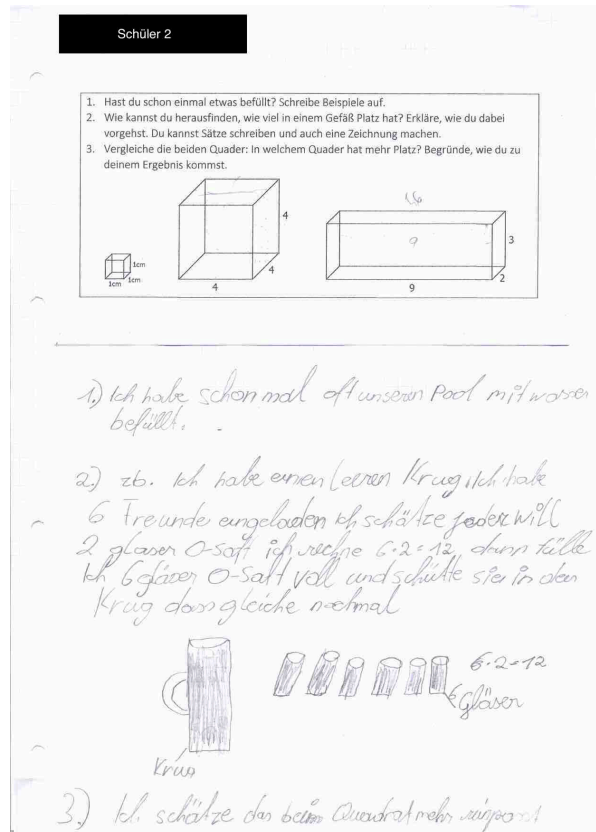 Schüler 2
1. Hast du schon einmal etwas befüllt? Schreibe Beispiele auf.
2. Wie kannst du herausfinden, wie viel in einem Gefäß Platz hat? Erkläre, wie du dabei
vorgehst. Du kannst Sätze schreiben und auch eine Zeichnung machen.
3. Vergleiche die beiden Quader: In welchem Quader hat mehr Platz? Begründe, wie du zu
deinem Ergebnis kommst.
16
4
9
3
1cm
4
2
1cm
1cm
4
9
1.) Ich habe schon mal oft unseren Pool mit wasser
befüllt.
2.) zb. Ich habe einen leeren Krug. Ich habe
6 Freunde eingeladen ich schätze jeder will
2 gläser O-saft ich rechne 6·2=12, dann fülle
Ich 6 gläser O-Saft voll und schütte sie in den
Krug dass gleiche nochmal
6·2=12
6 Gläser
Krug
3.) Ich schätze das beim Quadrat mehr reinpasst